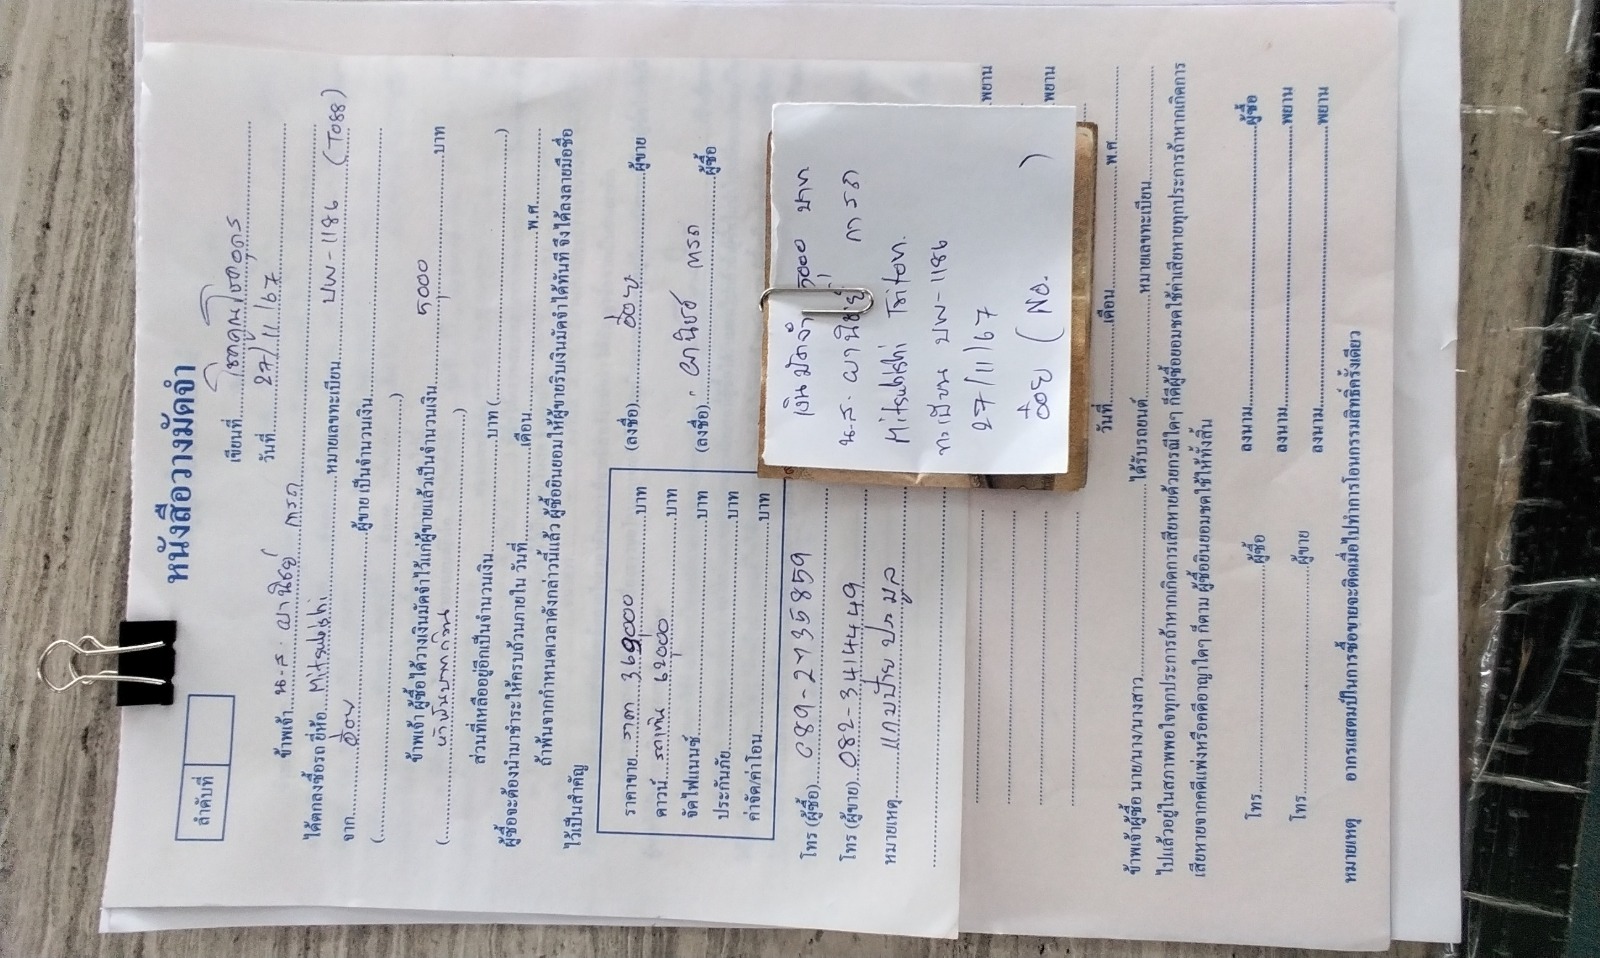 หนังสือวางมัดจำ
ลำดับที่
เขียนที่
วันที่ 27/11/67
ข้าพเจ้า น.ส. พานิชย์
ได้ตกลงซื้อรถ ยี่ห้อ Mitsubishi หมายเลขทะเบียน บพ-1186
จาก ผู้ขาย เป็นจำนวนเงิน
( )
ข้าพเจ้า ผู้ซื้อได้วางเงินมัดจำไว้แก่ผู้ขายแล้วเป็นจำนวนเงิน 5000 บาท
( ห้าพันบาทถ้วน )
ส่วนที่เหลืออยู่อีกเป็นจำนวนเงิน บาท ( )
ผู้ซื้อจะต้องนำมาชำระให้ครบถ้วนภายใน วันที่ เดือน พ.ศ.
ถ้าพ้นจากกำหนดเวลาดังกล่าวนี้แล้ว ผู้ซื้อยินยอมให้ผู้ขายริบเงินมัดจำได้ทันที จึงได้ลงลายมือชื่อ
ไว้เป็นสำคัญ
ราคาขาย 369,000 บาท
ดาวน์ 62,000 บาท
จัดไฟแนนซ์ บาท
ประกันภัย บาท
ค่าจัด/ค่าโอน บาท
(ลงชื่อ) ผู้ขาย
(ลงชื่อ) ผู้ซื้อ
โทร (ผู้ซื้อ) 089-2735859
โทร (ผู้ขาย) 082-3414449
หมายเหตุ แถมป้าย ประมูล
เงินมัดจำ 5000 บาท
น.ส. พานิชย์
Mitsubishi Triton.
ทะเบียน บพ-1186
27/11/67
(No. )
พยาน
พยาน
วันที่ เดือน พ.ศ.
ข้าพเจ้าผู้ซื้อ นาย/นาง/นางสาว ได้รับรถยนต์ หมายเลขทะเบียน
ไปแล้วอยู่ในสภาพพอใจทุกประการถ้าหากเกิดการเสียหายด้วยกรณีใดๆ ก็ดีผู้ซื้อยอมชดใช้ค่าเสียหายทุกประการถ้าหากเกิดการ
เสียหายจากคดีแพ่งหรือคดีอาญาใดๆ ก็ตาม ผู้ซื้อยินยอมชดใช้ให้ทั้งสิ้น
ลงนาม ผู้ซื้อ
โทร ผู้ซื้อ ลงนาม พยาน
โทร ผู้ขาย ลงนาม พยาน
หมายเหตุ อากรแสตมป์ในการซื้อขายจะติดเมื่อไปทำการโอนกรรมสิทธิ์ครั้งเดียว